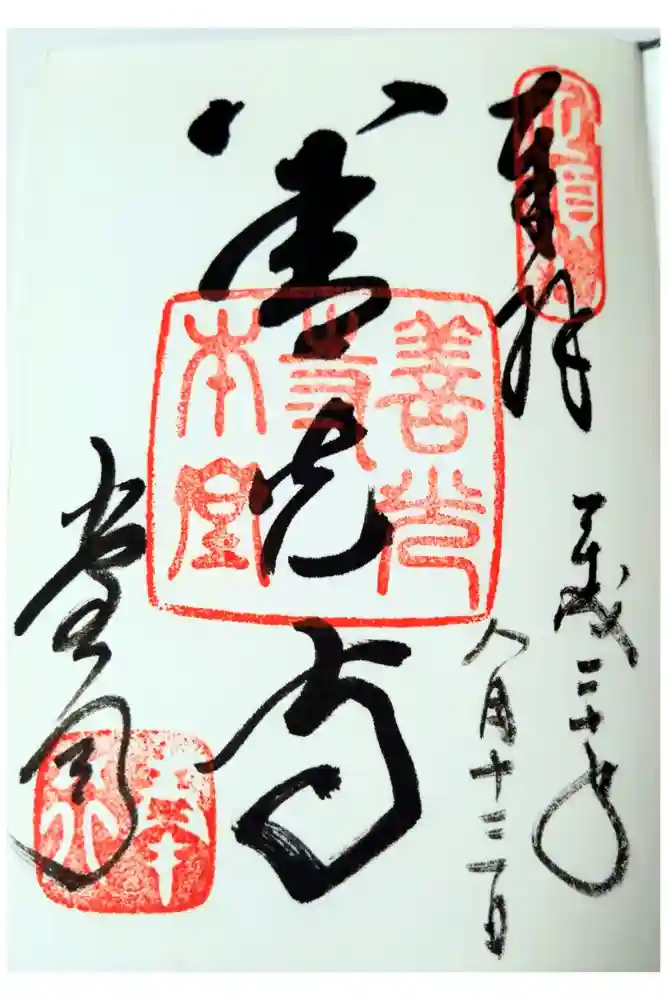 奉拝
平成二十七年
八月十三日
善光寺
善光
寺
本堂
堂司